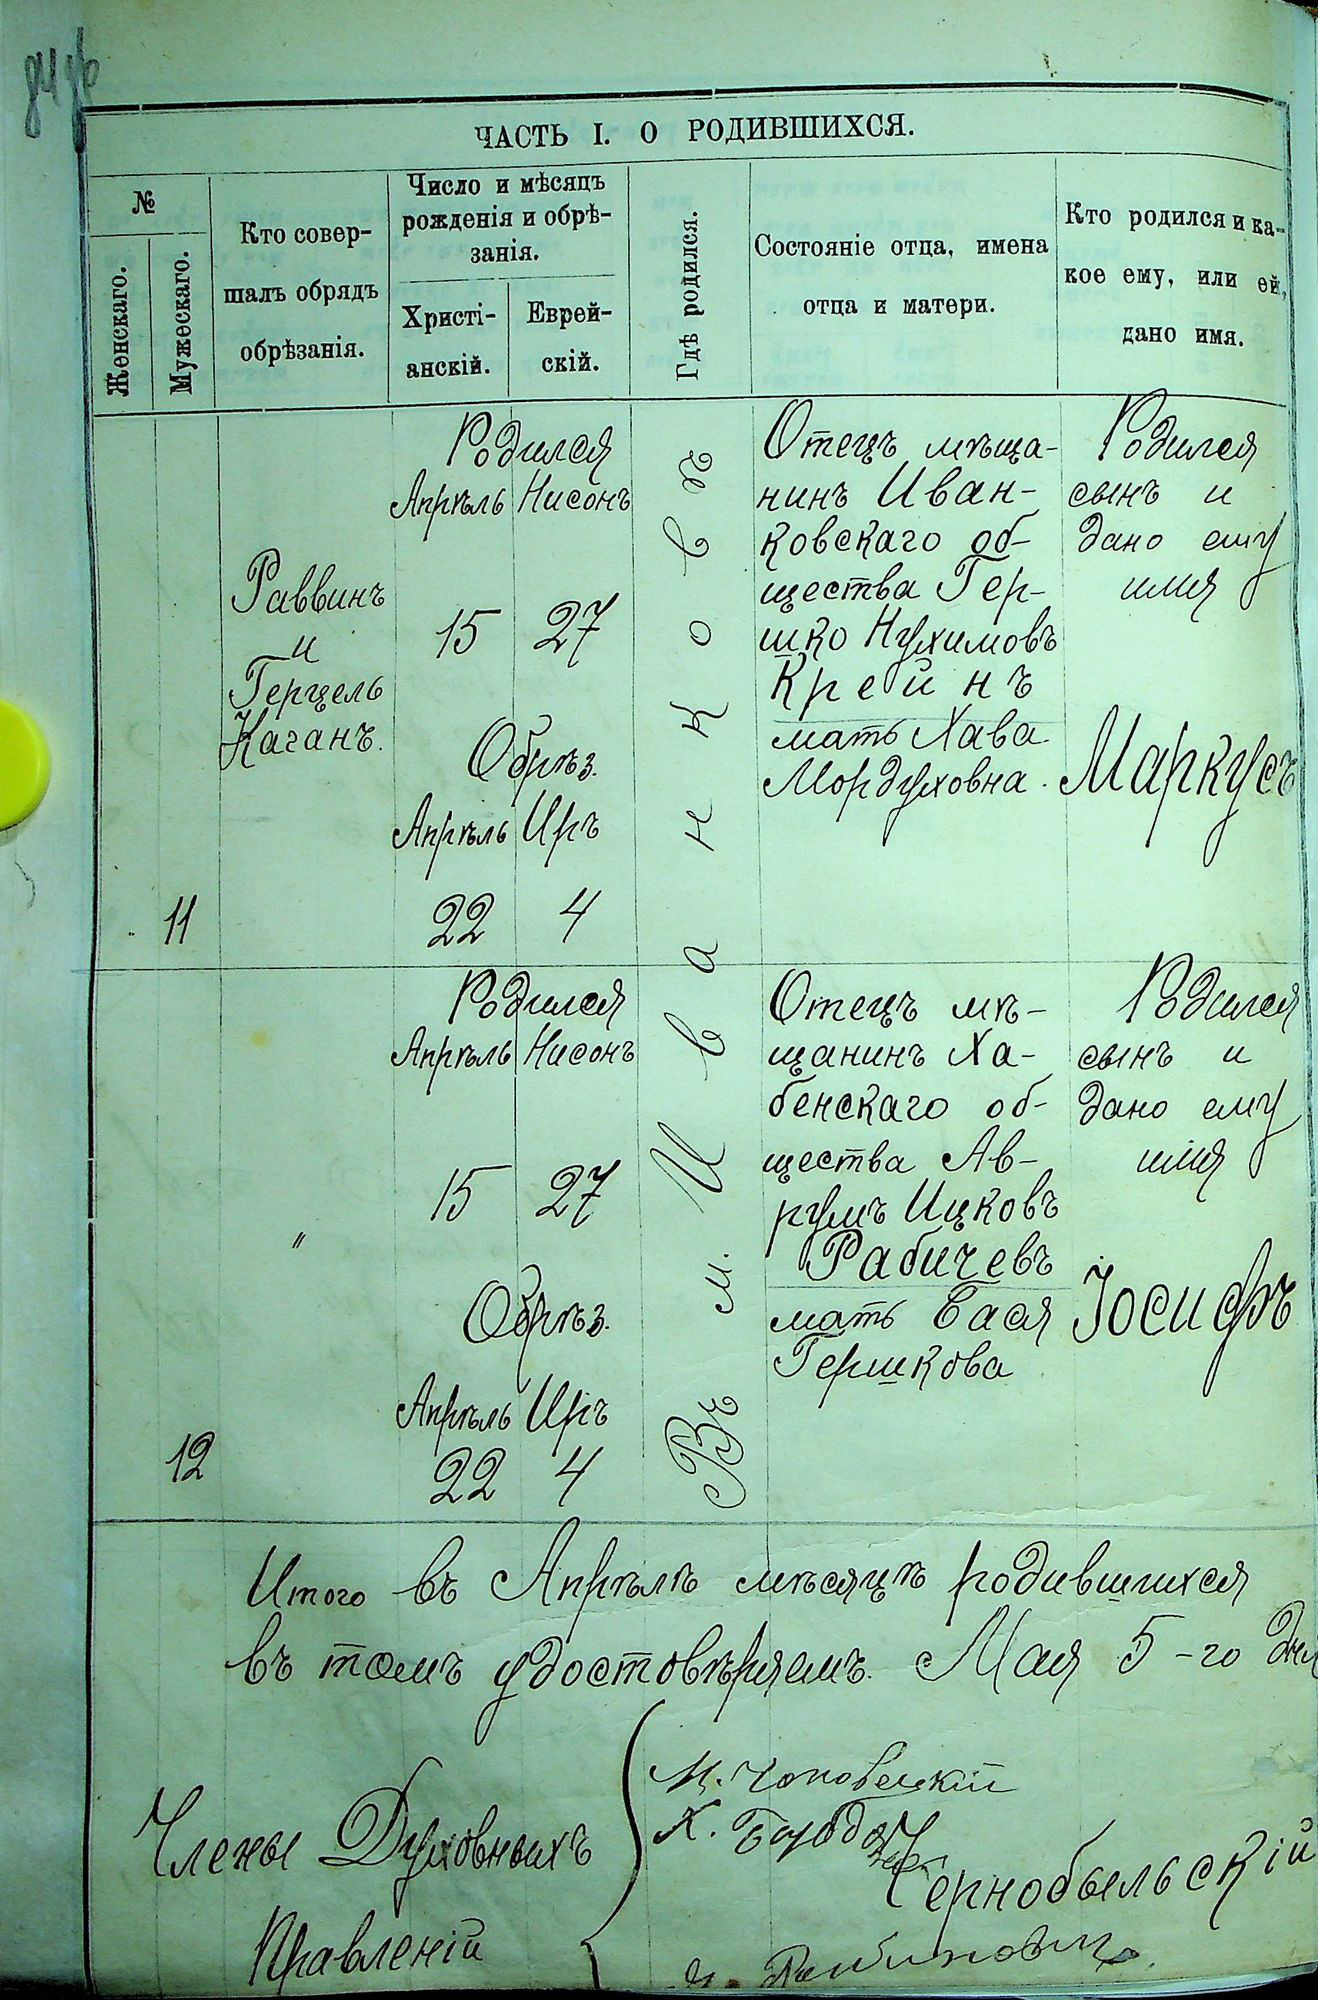 ЧАСТЬ I. О РОДИВШИХСЯ.
№
Женскаго.
Мужескаго.
Кто совер-
шалъ обрядъ
обрѣзанія.
Число и мѣсяцъ
рожденія и обрѣ-
занія.
Христі-
анскій.
Еврей-
скій.
Гдѣ родился.
Состояніе отца, имена
отца и матери.
Кто родился и ка-
кое ему, или ей,
дано имя.
11
Раввинъ
и
Герцель
Каганъ.
Родился
Апрѣль Нисонъ
15 27
Обрѣз.
Апрѣль Иръ
22 4
Въ м. Иванковѣ
Отецъ мѣща-
нинъ Иван-
ковскаго об-
щества Гер-
шко Нухимовъ
Крейнъ
мать Хава
Мордуховна.
Родился
сынъ и
дано ему
имя
Маркусъ
12
"
Родился
Апрѣль Нисонъ
15 27
Обрѣз.
Апрѣль Иръ
22 4
Отецъ мѣ-
щанинъ Ха-
бенскаго об-
щества Ав-
румъ Ицковъ
Рабичевъ
мать Бася
Гершкова
Родился
сынъ и
дано ему
имя
Іосифъ
Итого въ Апрѣлѣ мѣсяцѣ родившихся
въ томъ удостовѣряемъ. Мая 5-го дня
Члены Духовныхъ
Правленій
М. Чоповецкій
Х.
Чернобыльскій
Рабиновичъ